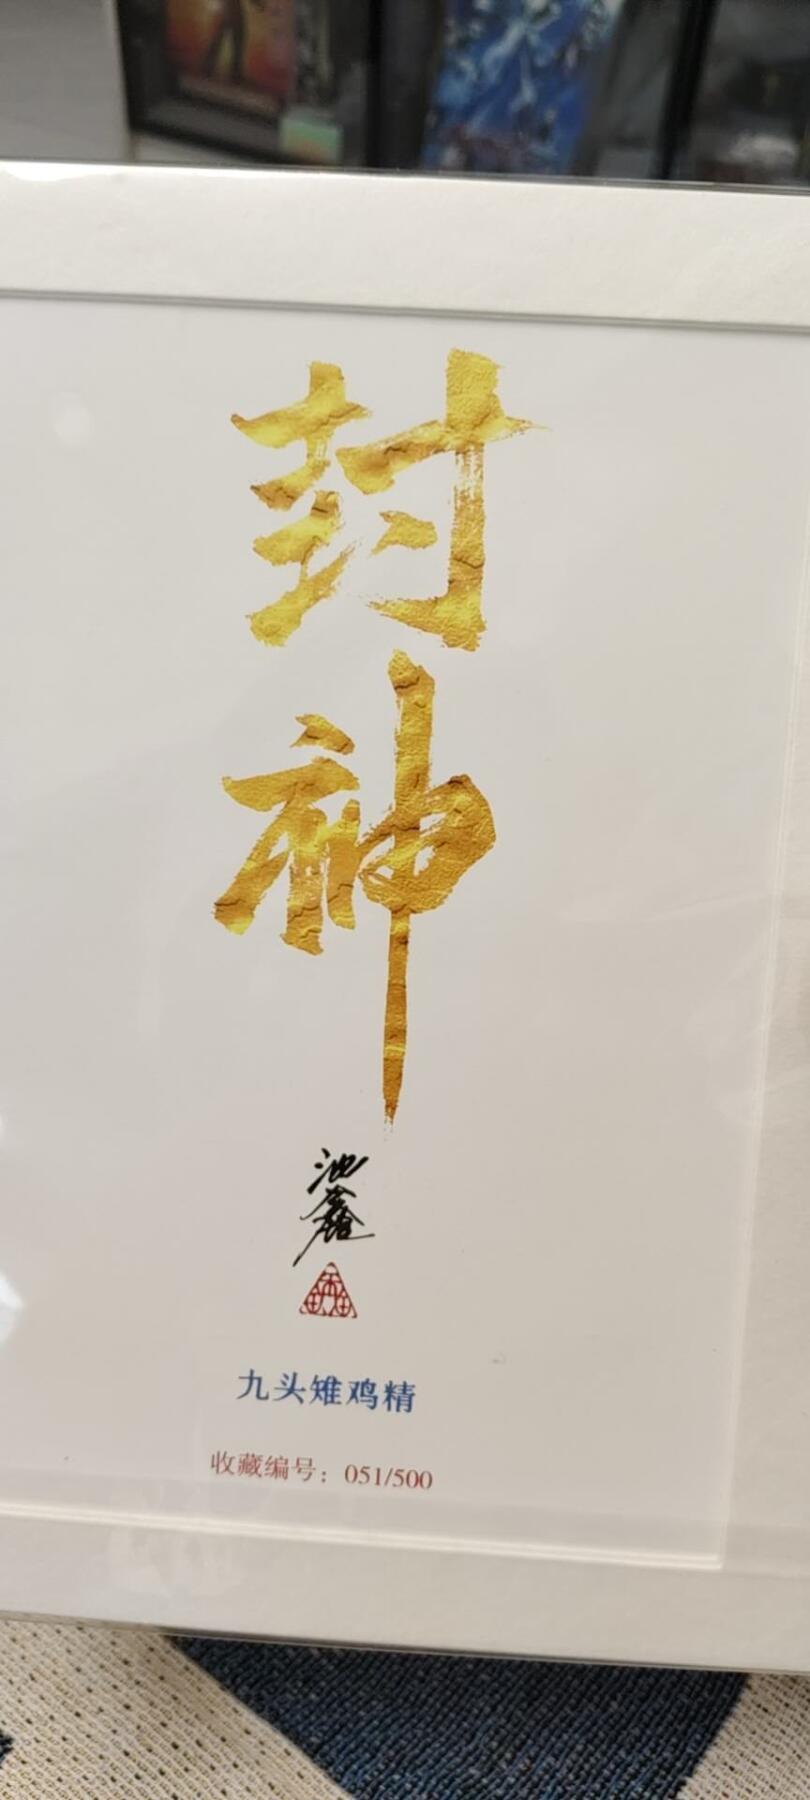 封神
池鑫
九头雉鸡精
收藏编号：051/500